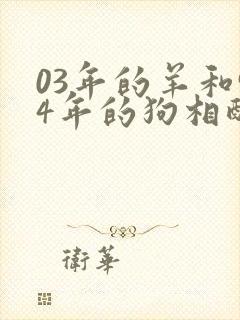 03年的羊和
4年的狗相
衛華